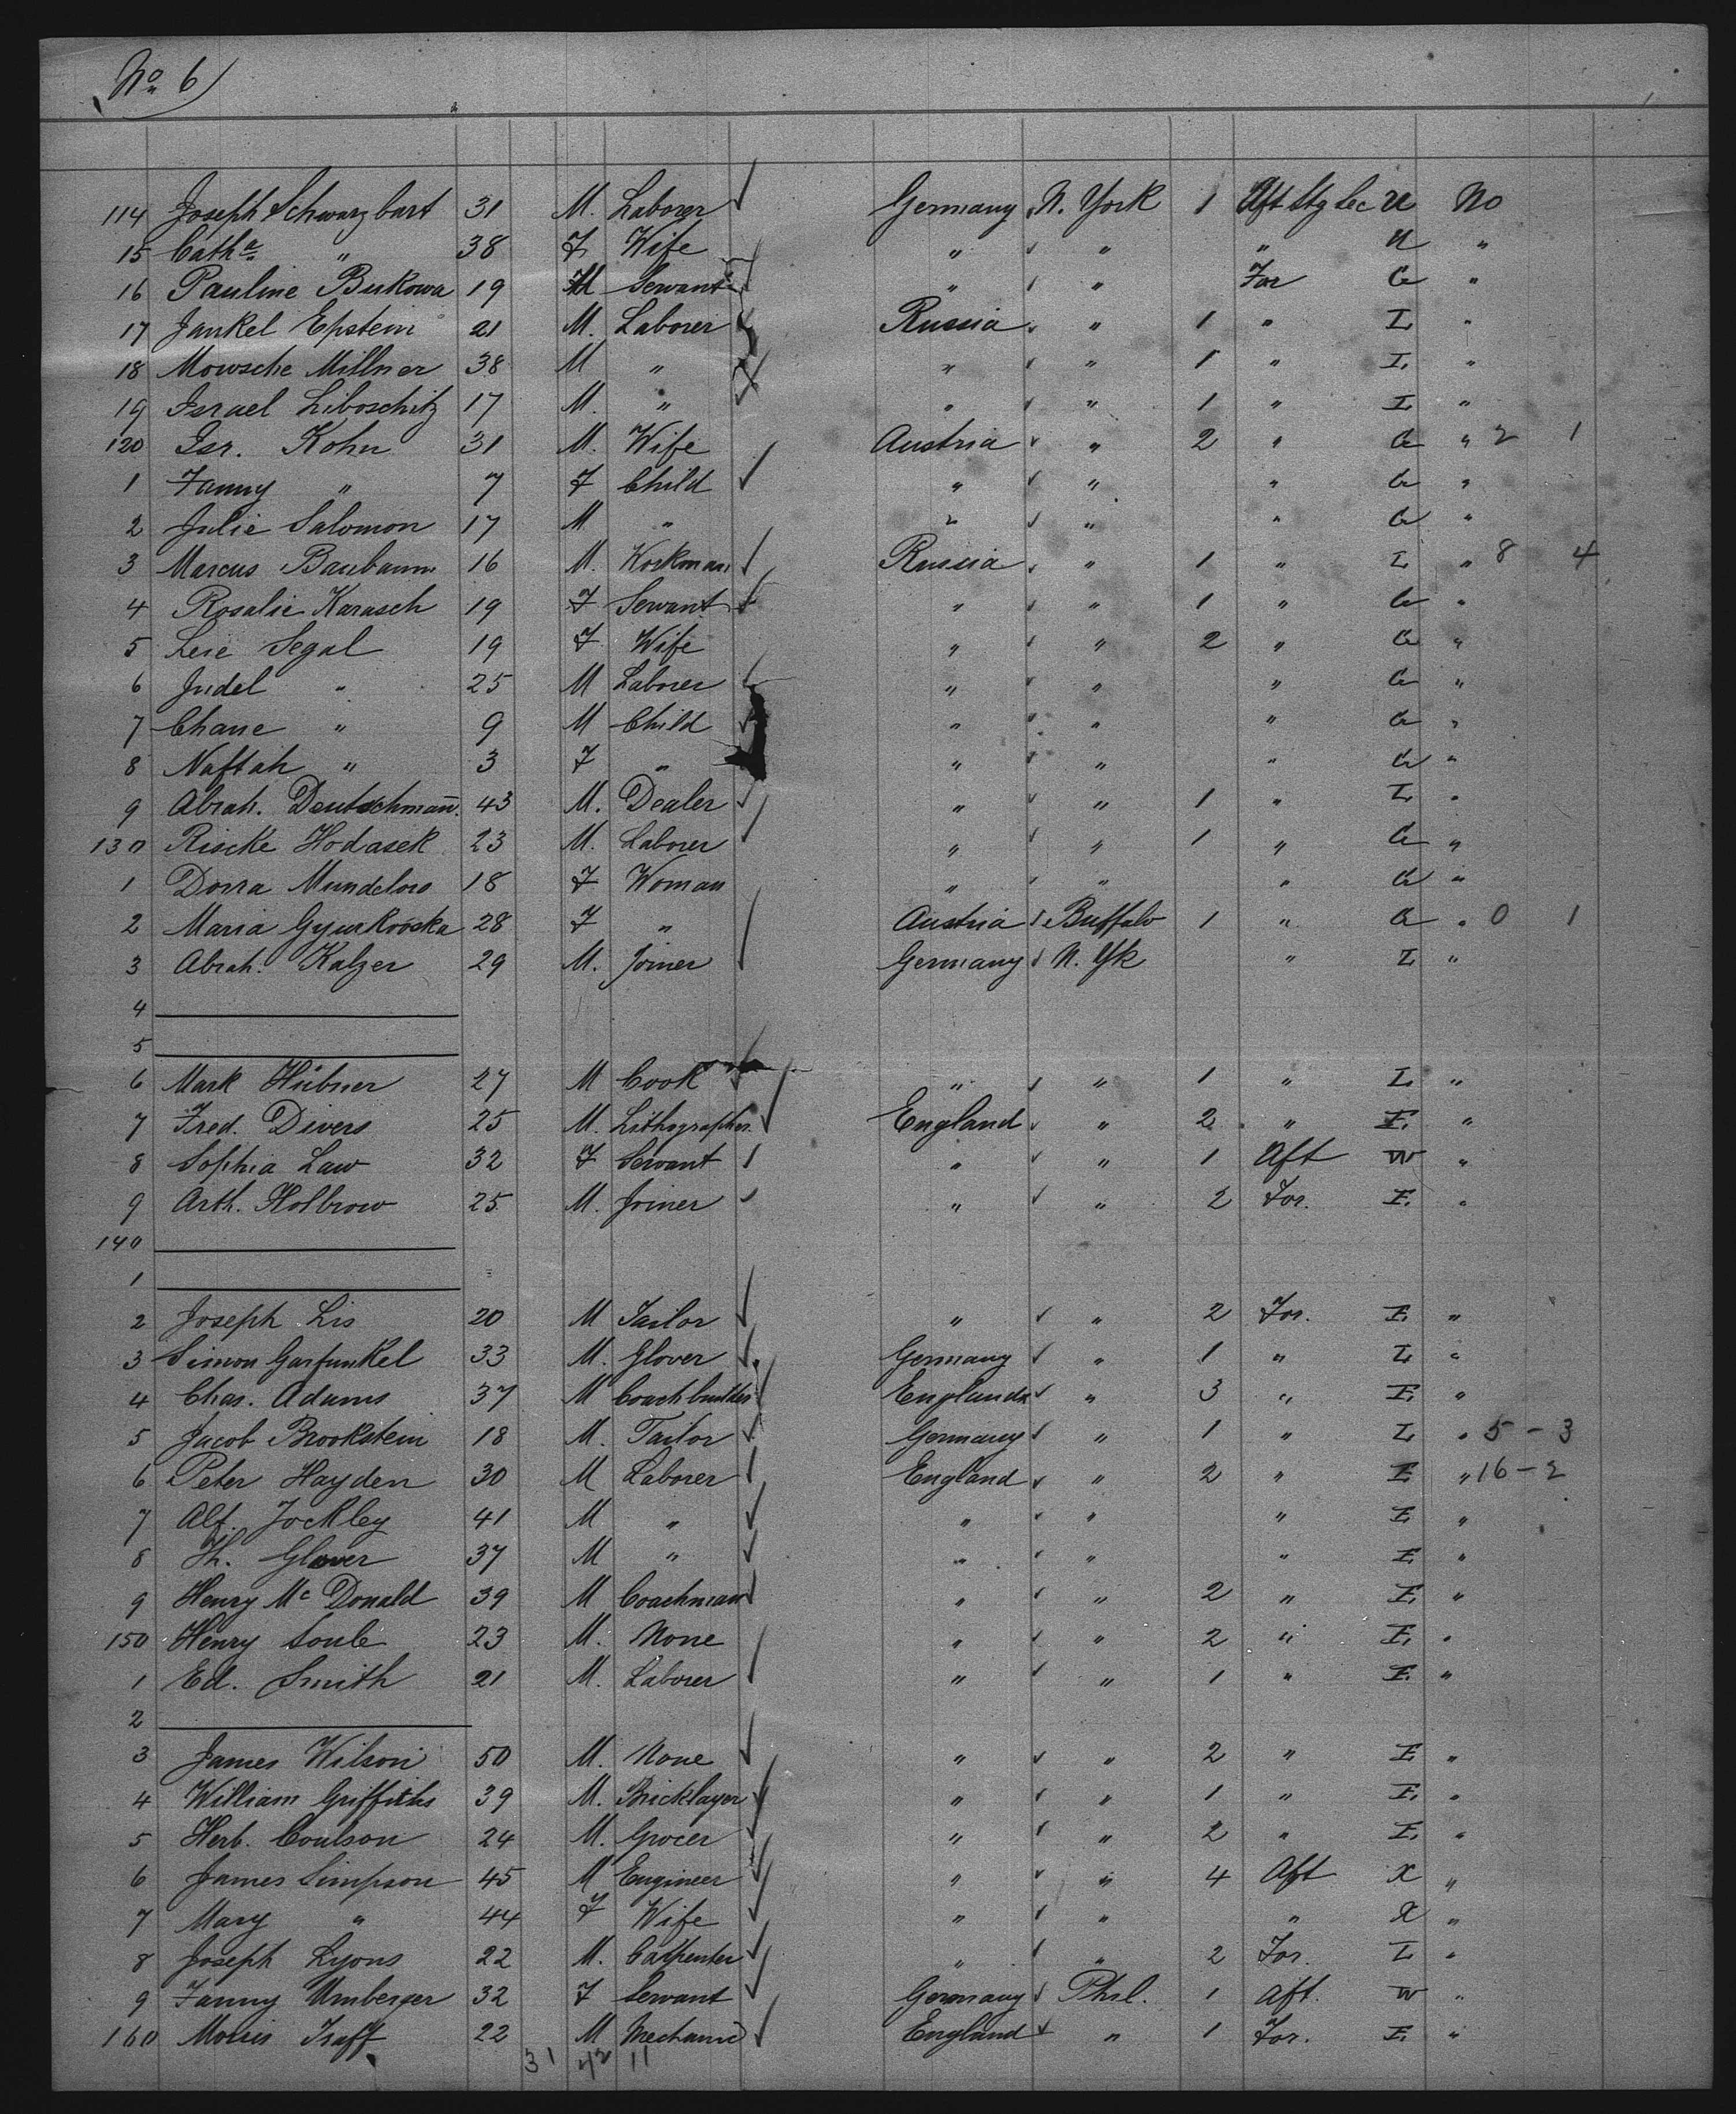 No 6
114 Joseph Schwarzbart 31 M. Laborer ✓ Germany N. York 1 Aft Stg lec U No
15 Catha " 38 F Wife " ✓ " " U "
16 Pauline Bukowa 19 Servant " ✓ " For G "
17 Jankel Epstein 21 M. Laborer Russia ✓ " 1 " I "
18 Mowsche Millner 38 M " " ✓ " 1 " I "
19 Israel Liboschitz 17 M. " " ✓ " 1 " I "
120 Isr. Kohn 31 M. Wife Austria ✓ " 2 " G " 2 1
1 Fanny " 7 F Child ✓ " ✓ " " G "
2 Julie Salomon 17 M " " ✓ " " G "
3 Marcus Baubaum 16 M. Workman ✓ Russia ✓ " 1 " I " 8 4
4 Rosalie Karasch 19 F Servant ✓ " ✓ " 1 " G "
5 Leie Segal 19 F Wife " ✓ " 2 " G "
6 Judel " 25 M Laborer ✓ " ✓ " " G "
7 Chane " 9 M Child ✓ " ✓ " " G "
8 Naftah " 3 F " " ✓ " " G "
9 Abrah. Deutschmann. 43 M. Dealer ✓ " ✓ " 1 " I "
130 Riscke Hodasek 23 M. Laborer ✓ " ✓ " 1 " G "
1 Dorra Mundelow 18 F Woman " ✓ " " G "
2 Maria Gyurkovska 28 F " Austria ✓ Buffalo 1 " G " 0 1
3 Abrah. Kalzer 29 M. Joiner ✓ Germany ✓ N. Yk " I "
4
5
6 Mark Hübner 27 M Cook ✓ " ✓ " 1 " I "
7 Fred. Divers 25 M. Lithographer ✓ England ✓ " 2 " E. "
8 Sophia Law 32 F Servant ✓ " ✓ " 1 Aft W "
9 Arth. Holbrow 25 M. Joiner ✓ " ✓ " 2 For. E. "
140
1
2 Joseph Lis 20 M Tailor ✓ " ✓ " 2 For. E "
3 Simon Garfunkel 33 M. Glover ✓ Germany ✓ " 1 " I "
4 Chas. Adams 37 M Coachbuilder ✓ England ✓ " 3 " E. "
5 Jacob Brookstein 18 M. Tailor ✓ Germany ✓ " 1 " I " 5 - 3
6 Peter Hayden 30 M Laborer ✓ England ✓ " 2 " E " 16 - 2
7 Alf. Jockley 41 M " ✓ " ✓ " " E "
8 Th. Glover 37 M " ✓ " ✓ " " E "
9 Henry Mc Donald 39 M Coachman ✓ " ✓ " 2 " E. "
150 Henry Soule 23 M. None " ✓ " 2 " E. "
1 Ed. Smith 21 M. Laborer ✓ " ✓ " 1 " E. "
2
3 James Wilson 50 M. None ✓ " ✓ " 2 " E "
4 William Griffiths 39 M. Bricklayer ✓ " ✓ " 1 " E. "
5 Herb. Coulson 24 M. Grocer ✓ " ✓ " 2 " E. "
6 James Simpson 45 M Engineer ✓ " ✓ " 4 Aft X "
7 Mary " 44 F Wife ✓ " ✓ " " X "
8 Joseph Lyons 22 M. Carpenter ✓ " ✓ " 2 For. I "
9 Fanny Umberger 32 F Servant ✓ Germany ✓ Phil. 1 Aft. W "
160 Morris Traff 22 M Mechanic ✓ England ✓ " 1 For. E. "
31 42 11